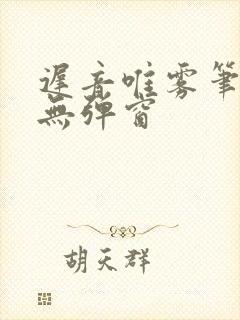 遲音唯雾筆
無弹窗
胡天群